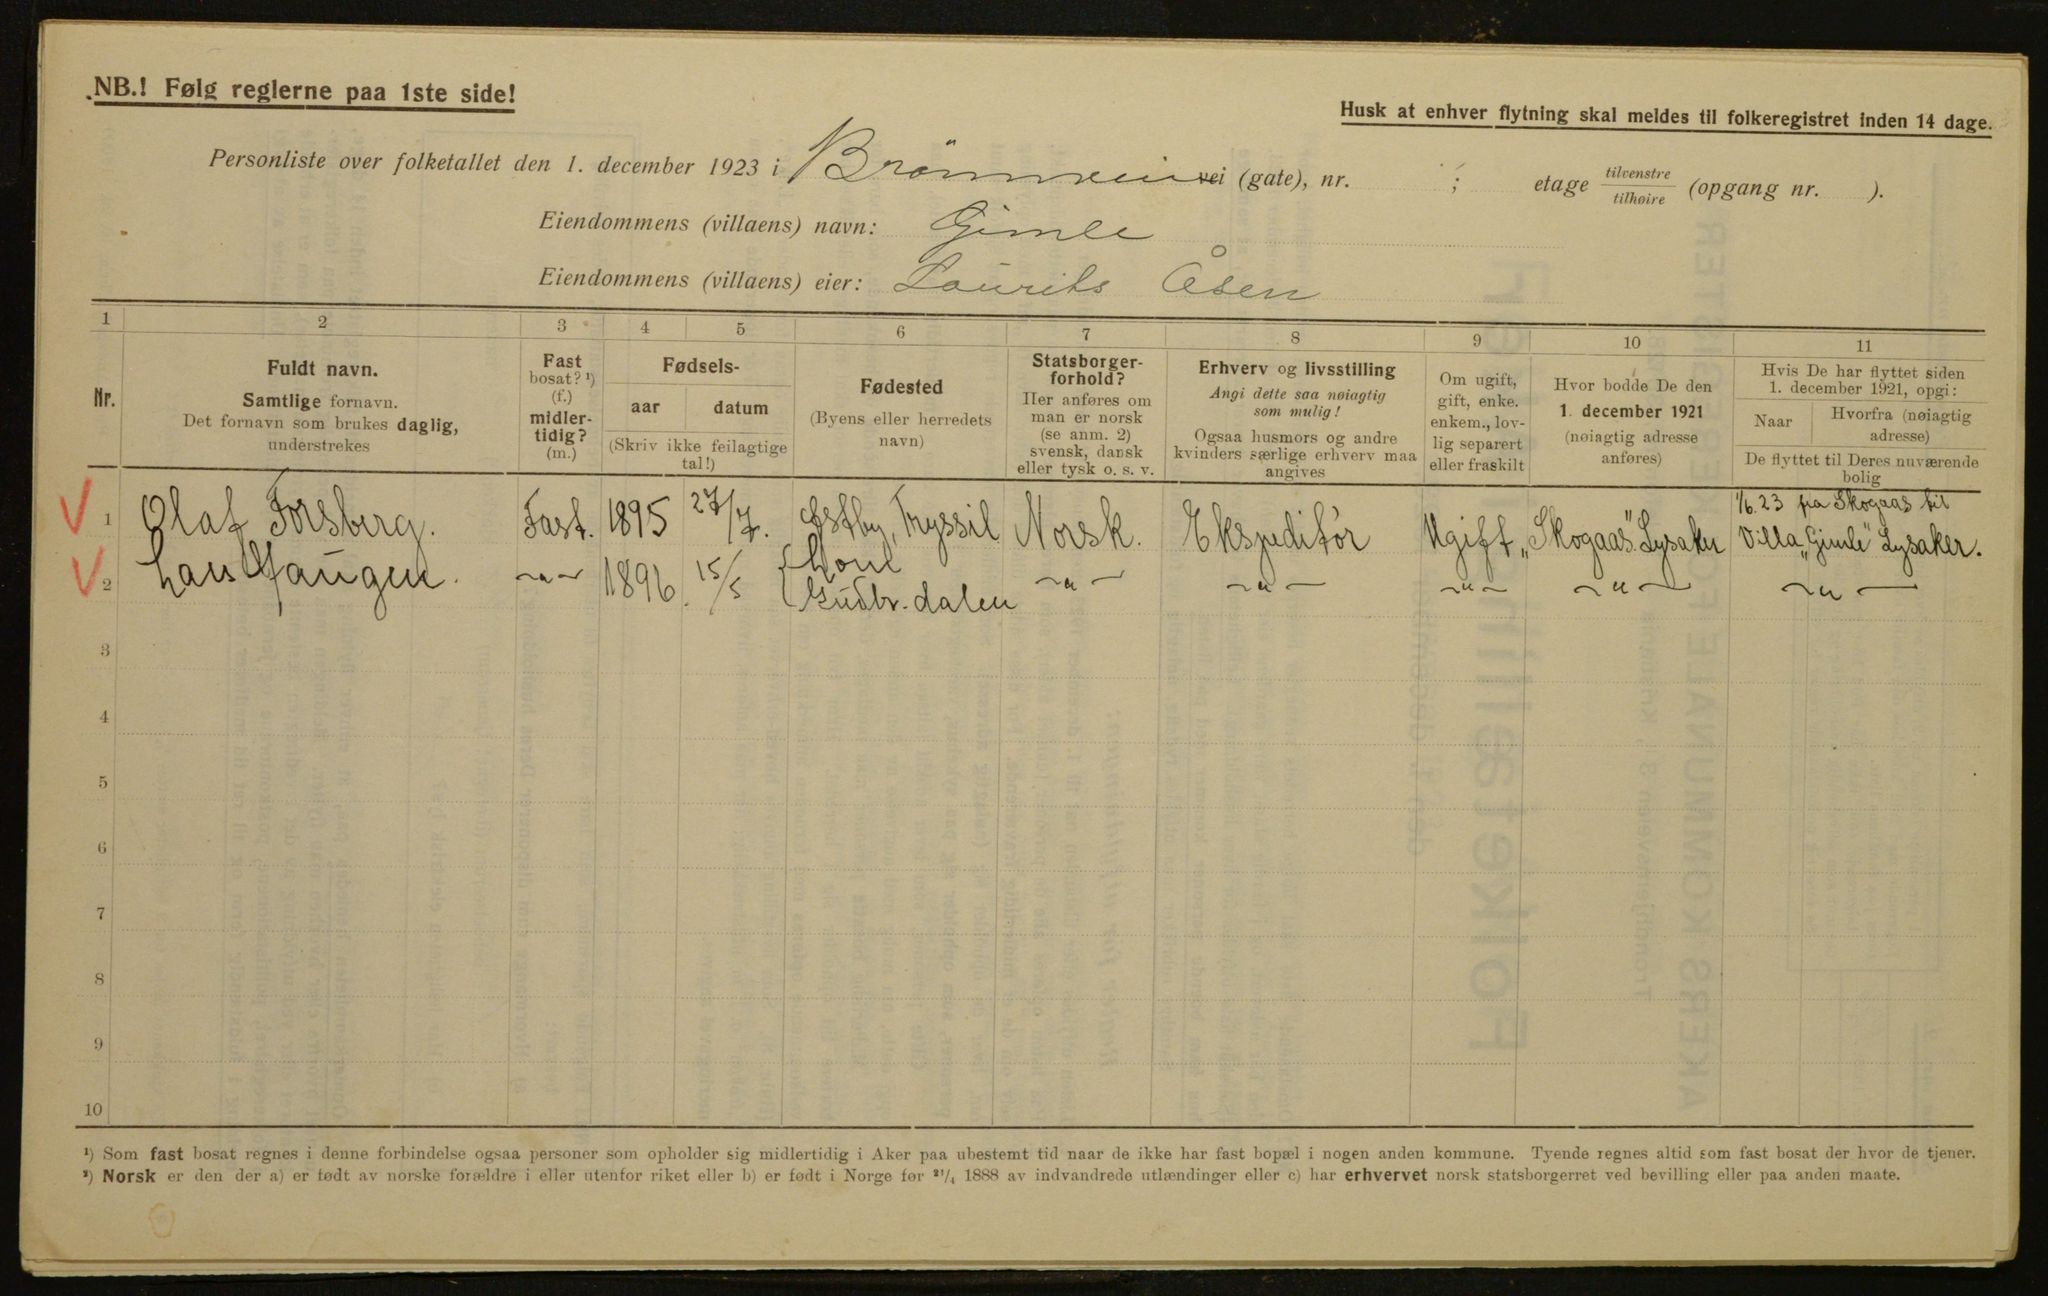 NB.! Følg reglerne paa 1ste side!
Husk at enhver flytning skal meldes til folkeregistret inden 14 dage.
Personliste over folketallet den 1. december 1923 i vei (gate), nr. ; etage tilvenstre tilhøire (opgang nr. ).
Eiendommens (villaens) navn: Gimle
Eiendommens (villaens) eier: Laurits Åsen
1 2 3 4 5 6 7 8 9 10 11
Nr.
Fuldt navn.
Samtlige fornavn.
Det fornavn som brukes daglig,
understrekes
Fast
bosat? ¹)
(f.)
midler-
tidig?
(m.)
Fødsels-
aar datum
(Skriv ikke feilagtige
tal!)
Fødested
(Byens eller herredets
navn)
Statsborger-
forhold?
Her anføres om
man er norsk
(se anm. 2)
svensk, dansk
eller tysk o. s. v.
Erhverv og livsstilling
Angi dette saa nøiagtig
som mulig!
Ogsaa husmors og andre
kvinders særlige erhverv maa
angives
Om ugift,
gift, enke.
enkem., lov-
lig separert
eller fraskilt
Hvor bodde De den
1. december 1921
(nøiagtig adresse
anføres)
Hvis De har flyttet siden
1. december 1921, opgi:
Naar Hvorfra (nøiagtig
adresse)
De flyttet til Deres nuværende
bolig
1 Olaf Forsberg. Fast. 1895 27/7. Østby, Tryssil Norsk. Ekspeditør Ugift "Skogaas" Lysaker 1/6.23 fra Skogaas til
Villa "Gimle" Lysaker.
2 Haugen. -"- 1896. 15/5 Gudbr.dalen -"- -"- -"- -"- -"-
3
4
5
6
7
8
9
10
¹) Som fast bosat regnes i denne forbindelse ogsaa personer som opholder sig midlertidig i Aker paa ubestemt tid naar de ikke har fast bopæl i nogen anden kommune. Tyende regnes altid som fast bosat der hvor de tjener.
²) Norsk er den der a) er født av norske forældre i eller utenfor riket eller b) er født i Norge før 21/4 1888 av indvandrede utlændinger eller c) har erhvervet norsk statsborgerret ved bevilling eller paa anden maate.